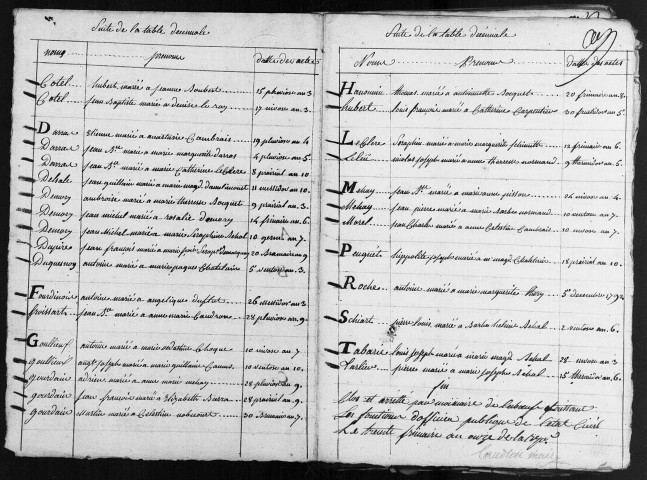 Suite de la table décennale
noms prenoms datte des actes
Cotel hubert marié a jeanne Boubert 15 pluviose an 3
Cotel jean Baptiste marié a denise le Roy 17 nivose an 3.
Darra Etienne marié a anastasie Caubrais 19 pluviose an 4
Darras jean Bte marié a marie marguerite darras 4 pluviose an 5.
Darras jean Bte marié a marie Catherine Leclere 8 prairial an 10
Dehale jean guillain marié a marie magd. 11 messidor an 10.
Demory ambroise marié a marie therresse Bocquet 9 prairial an 3.
Demory jean michel marié a rosalie demory 14 frimaire an 6.
Demory jean Michel marié a marie Seraphine Sehal 10 germi an 7.
Dupire jean françois marié a marie 20 Brumaire an 9
Duquesnoy antoine marié a marie jaque Chatelain 5 ventose an 3.
Fourdinier antoine marié a angelique duflot 26 messidor an 3
froissart jean Bte marié a anne marie Caudron 28 pluviose an 9.
Goullieuf antoine marié a marie Choque 10 nivose an 7
goullieuf augt joseph marié a marie guillaine Camus 10 ventose an 10.
gourdain adrien marié a anne marie mehay 28 pluviose an 9.
gourdain jean francois marié a Elizabeth Burra 28 prairial an 9.
gourdain Martin marié a Celestine 30 Brumaire an 7.
Suite de la table décennale
Noms Prenoms datte des actes
Hanuuin thomas marié a antoinette Bocquet 20 frimaire an 8
hubert louis françois marié a Catherine Carpentier 30 fructidor an 5.
Leclere Seraphin marié a marie marguerite 12 frimaire an 6.
nicolas joseph marié a anne therresse normand 9 thermidor an 6.
Mehay jean Bte marié a marie anne pisson 24 nivose an 4.
Mehay jean pierre marié a marie Barbe normand 10 ventose an 7
Morel jean Charles marié a anne Celestine Caubrais 10 nivose an 7.
Peugnet hippolite joseph marié a m. magd Chatelain 18 prairial an 10.
Roche antoine marié a marie marguerite thery 5 decembre 1792
Schiart pierre louis marié a Barbe Sehal 2 ventose an 6.
Tabare louis joseph marié a marie magd Sehal 28 nivose an 3
Tarlier pierre marié a marie joseph Sehal 15 thermidor an 6.
fin
Clos et arretté par moi maire de
les fonctions d'officier publique de l'etat civil
Le trente frimaire an onze de la rep.
maire